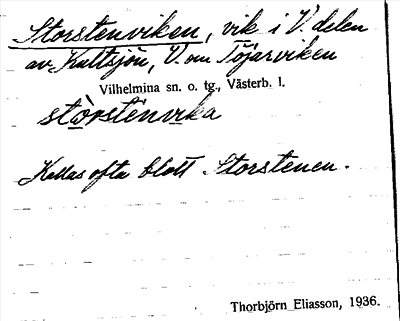 Storstenviken, vik i V. delen
av Kultsjön, V. om Töjarviken
Vilhelmina sn. o. tg., Västerb. l.
stòrsténvika
Kallas ofta blott Storstenen.
Thorbjörn Eliasson, 1936.